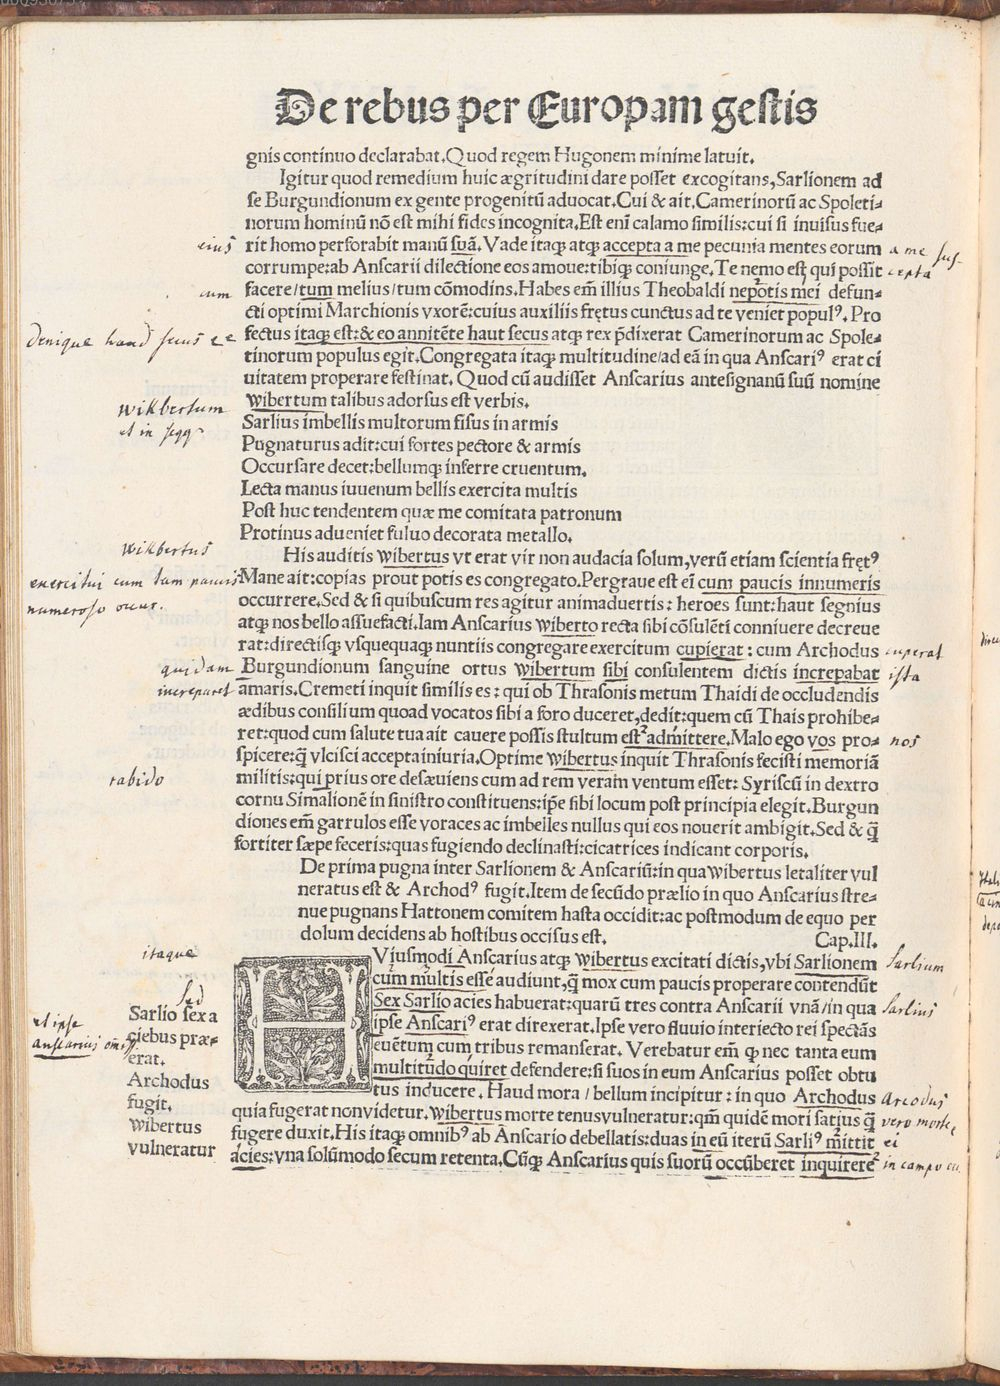 De rebus per Europam gestis
gnis continuo declarabat. Quod regem Hugonem minime latuit.
Igitur quod remedium huic ægritudini dare posset excogitans, Sarlionem ad
se Burgundionum ex gente progenitū aduocat. Cui & ait. Camerinorū ac Spoleti⸗
norum hominū nō est mihi fides incognita. Est eni calamo similis: cui si inuisus fue⸗
eius
rit homo perforabit manū suā. Vade itaqꝫ atqꝫ accepta a me pecunia mentes eorum
a me sus-
corrumpe: ab Anscarii dilectione eos amoue: tibiqꝫ coniunge. Te nemo est qui possit
cepta
cum
facere/tum melius/tum cōmodius. Habes em̄ illius Theobaldi nepotis mei defun⸗
cti optimi Marchionis vxorē: cuius auxiliis fretus cunctus ad te veniet populꝰ. Pro
Denique haud secus
fectus itaqꝫ est: & eo annitēte haut secus atqꝫ rex p̄dixerat Camerinorum ac Spole⸗
tinorum populus egit. Congregata itaqꝫ multitudine/ad eā in qua Anscariꝰ erat ci
uitatem properare festinat. Quod cū audisset Anscarius antesignanū suū nomine
wikbertum
et in seqq.
Wibertum talibus adorsus est verbis.
Sarlius imbellis multorum fisus in armis
Pugnaturus adit: cui fortes pectore & armis
Occursare decet: bellumqꝫ inferre cruentum.
Lecta manus iuuenum bellis exercita multis
Post huc tendentem quæ me comitata patronum
Protinus adueniet fuluo decorata metallo.
wikbertus
His auditis Wibertus vt erat vir non audacia solum, verū etiam scientia fretꝰ
exercitui cum tam paucis
Mane ait: copias prout potis es congregato. Pergraue est ei cum paucis innumeris
numeroso occur.
occurrere. Sed & si quibuscum res agitur animaduertis: heroes sunt: haut segnius
atqꝫ nos bello assuefacti. Iam Anscarius Wiberto recta sibi cōsulēti conniuere decreue
rat: directisqꝫ vsquequaqꝫ nuntiis congregare exercitum cupierat: cum Archodus
cuperat
quidam
Burgundionum sanguine ortus Wibertum sibi consulentem dictis increpabat
ista
increparet
amaris. Cremeti inquit similis es: qui ob Thrasonis metum Thaidi de occludendis
ædibus consilium quoad vocatos sibi a foro duceret, dedit: quem cū Thais prohibe⸗
ret: quod cum salute tua ait cauere possis stultum est admittere. Malo ego vos pro⸗
nos
spicere: q̄ vlcisci accepta iniuria. Optime Wibertus inquit Thrasonis fecisti memoriā
rabido
militis: qui prius ore desæuiens cum ad rem veram ventum esset: Syriscū in dextro
cornu Simalionē in sinistro constituens: ip̄e sibi locum post principia elegit. Burgun
diones em̄ garrulos esse voraces ac imbelles nullus qui eos nouerit ambigit. Sed & q̄
fortiter sæpe feceris: quas fugiendo declinasti: cicatrices indicant corporis.
De prima pugna inter Sarlionem & Anscariū: in qua Wibertus letaliter vul
neratus est & Archodꝰ fugit. Item de secūdo prælio in quo Anscarius stre⸗
nue pugnans Hattonem comitem hasta occidit: ac postmodum de equo per
dolum decidens ab hostibus occisus est. Cap. III.
itaque
HViusmodi Anscarius atqꝫ Wibertus excitati dictis, vbi Sarlionem
Sarlium
cum multis esse audiunt, q̄ mox cum paucis properare contendūt
sed
Sarlio sex a
Sex Sarlio acies habuerat: quarū tres contra Anscarii vnā/in qua
Sarlius
et ipse
ciebus præ⸗
ipse Anscariꝰ erat direxerat. Ipse vero fluuio interiecto rei spectās
anscarius om̄s.
erat.
euētum cum tribus remanserat. Verebatur em̄ qꝫ nec tanta eum
Archodus
multitudo quiret defendere: si suos in eum Anscarius posset obtu
fugit.
tus inducere. Haud mora / bellum incipitur: in quo Archodus
Arcodus
Wibertus
quia fugerat non videtur. Wibertus morte tenus vulneratur: qm̄ quidē mori satius q̄
vero morte
vulneratur
fugere duxit. His itaqꝫ omnibꝰ ab Anscario debellatis: duas in eū iterū Sarliꝰ mittit
ei
acies: vna solūmodo secum retenta. Cūqꝫ Anscarius quis suorū occūberet inquirere
in campo